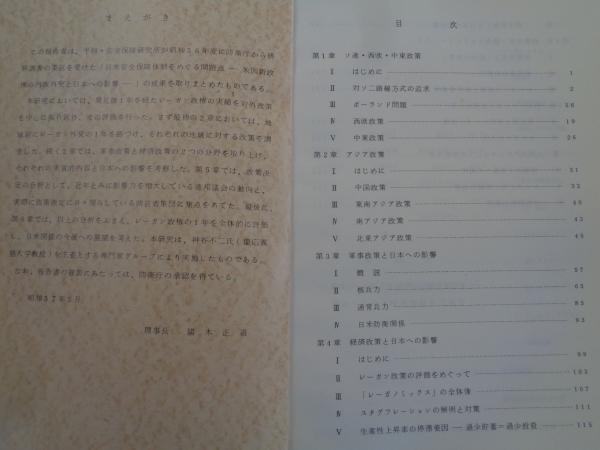 まえがき
この報告書は、平和・安全保障研究所が昭和56年度に防衛庁から情
報調査の委託を受けた「日米安全保障体制をめぐる問題点 ― 米国新政
権の内政外交と日本への影響 ― 」の成果を取りまとめたものである。
本研究においては、発足後1年を経たレーガン政権の実績を対外政策
を中心に振り返り、その評価を行った。まず最初の2章においては、地
域別にレーガン外交の1年を跡づけ、それぞれの地域に対する政策を調
査した。続く2章では、軍事政策と経済政策の2つの分野を取り上げ、
それぞれの実質的内容と日本への影響を考察した。第5章では、政策決
定の分析として、近年とみに影響力を増大している連邦議会の動向と、
実際に政策決定に日々関与している
集団に焦点をあてた。最後に、
第6章では、以上の分析をふまえ、レーガン政権の1年を全体的に評価
し、日米関係の今後への展望を考えた。本研究は、神谷不二氏(慶応義
塾大学教授)を主査とする専門家グループにより実施したものである。
なお、報告書の複製にあたっては、防衛庁の承認を得ている。
昭和57年3月
理事長 猪木正道
目次
第1章 ソ連・西欧・中東政策
Ⅰ はじめに 1
Ⅱ 対ソ二路線方式の追求 2
Ⅲ ポーランド問題 16
Ⅳ 西欧政策 19
Ⅴ 中東政策 26
第2章 アジア政策
Ⅰ はじめに 31
Ⅱ 中国政策 32
Ⅲ 東南アジア政策 40
Ⅳ 南アジア政策 43
Ⅴ 北東アジア政策 45
第3章 軍事政策と日本への影響
Ⅰ 概説 57
Ⅱ 核兵力 65
Ⅲ 通常兵力 85
Ⅳ 日米防衛関係 93
第4章 経済政策と日本への影響
Ⅰ はじめに 99
Ⅱ レーガン政策の評価をめぐって 102
Ⅲ 「レーガノミックス」の全体像 107
Ⅳ スタグフレーションの解明と対策 111
Ⅴ 生産性上昇率の停滞要因 ― 過少貯蓄=過少投資 115